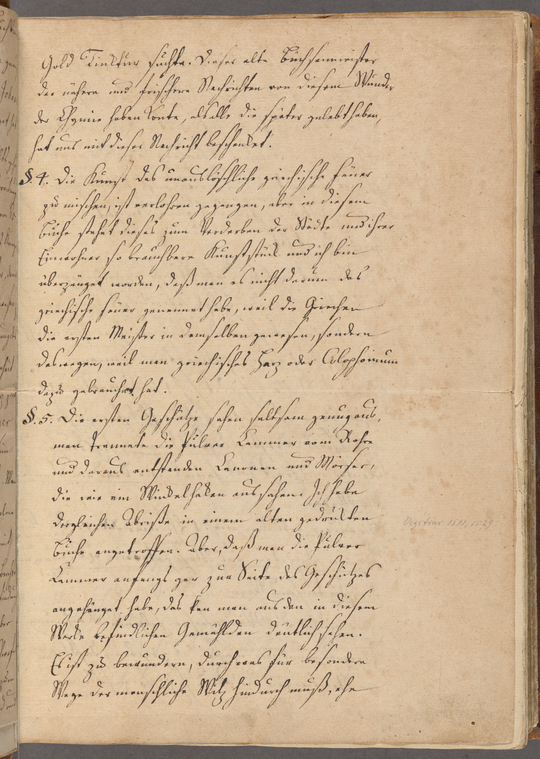 Gold Tinktur suchte. Dieser alte Büchsenmeister
der nähere und frischere Nachrichten von diesem Wunder
der Chymie haben konte, als alle die später gelebt haben,
hat uns mit dieser Nachricht beschenket.
§. 4. Die Kunst das unauslöschliche griechische Feuer
zu mischen, ist verlohren gegangen, aber in diesem
Buche stehet dieses zum Verderben der Städte und ihrer
Einwohner so brauchbare Kunststück und ich bin
überzeuget worden, daß man es nicht darum das
griechische Feuer genennet habe, weil die Griechen
die ersten Meister in demselben gewesen, sondern
deswegen, weil man griechisches Harz oder Colophonium
dazu gebrauchet hat.
§. 5. Die ersten Geschütze sehen seltsam genug aus,
man trennete die Pulver Kammer vom Rohre
und daraus entstanden Canonen und Mörser,
die wie ein Winkelhaken aussahen. Ich habe
dergleichen Abriße in einem alten gedruckten
Buche angetroffen. Aber, daß man die Pulver
Kammer anfangs gar zur Seite des Geschützes
angehänget habe, das kan man aus den in diesem
Werke befindlichen Gemählden deutlich sehen.
Es ist zu bewundern, durch was für besondere
Wege der menschliche Witz hindurch muß, ehe